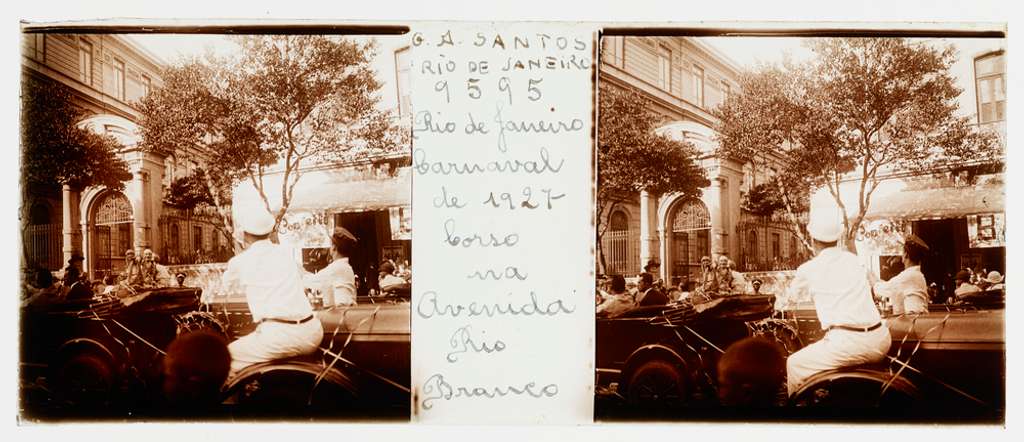 G. A. SANTOS
RIO DE JANEIRO
9595
Rio de Janeiro
Carnaval
de 1927
Corso
na
Avenida
Rio
Branco